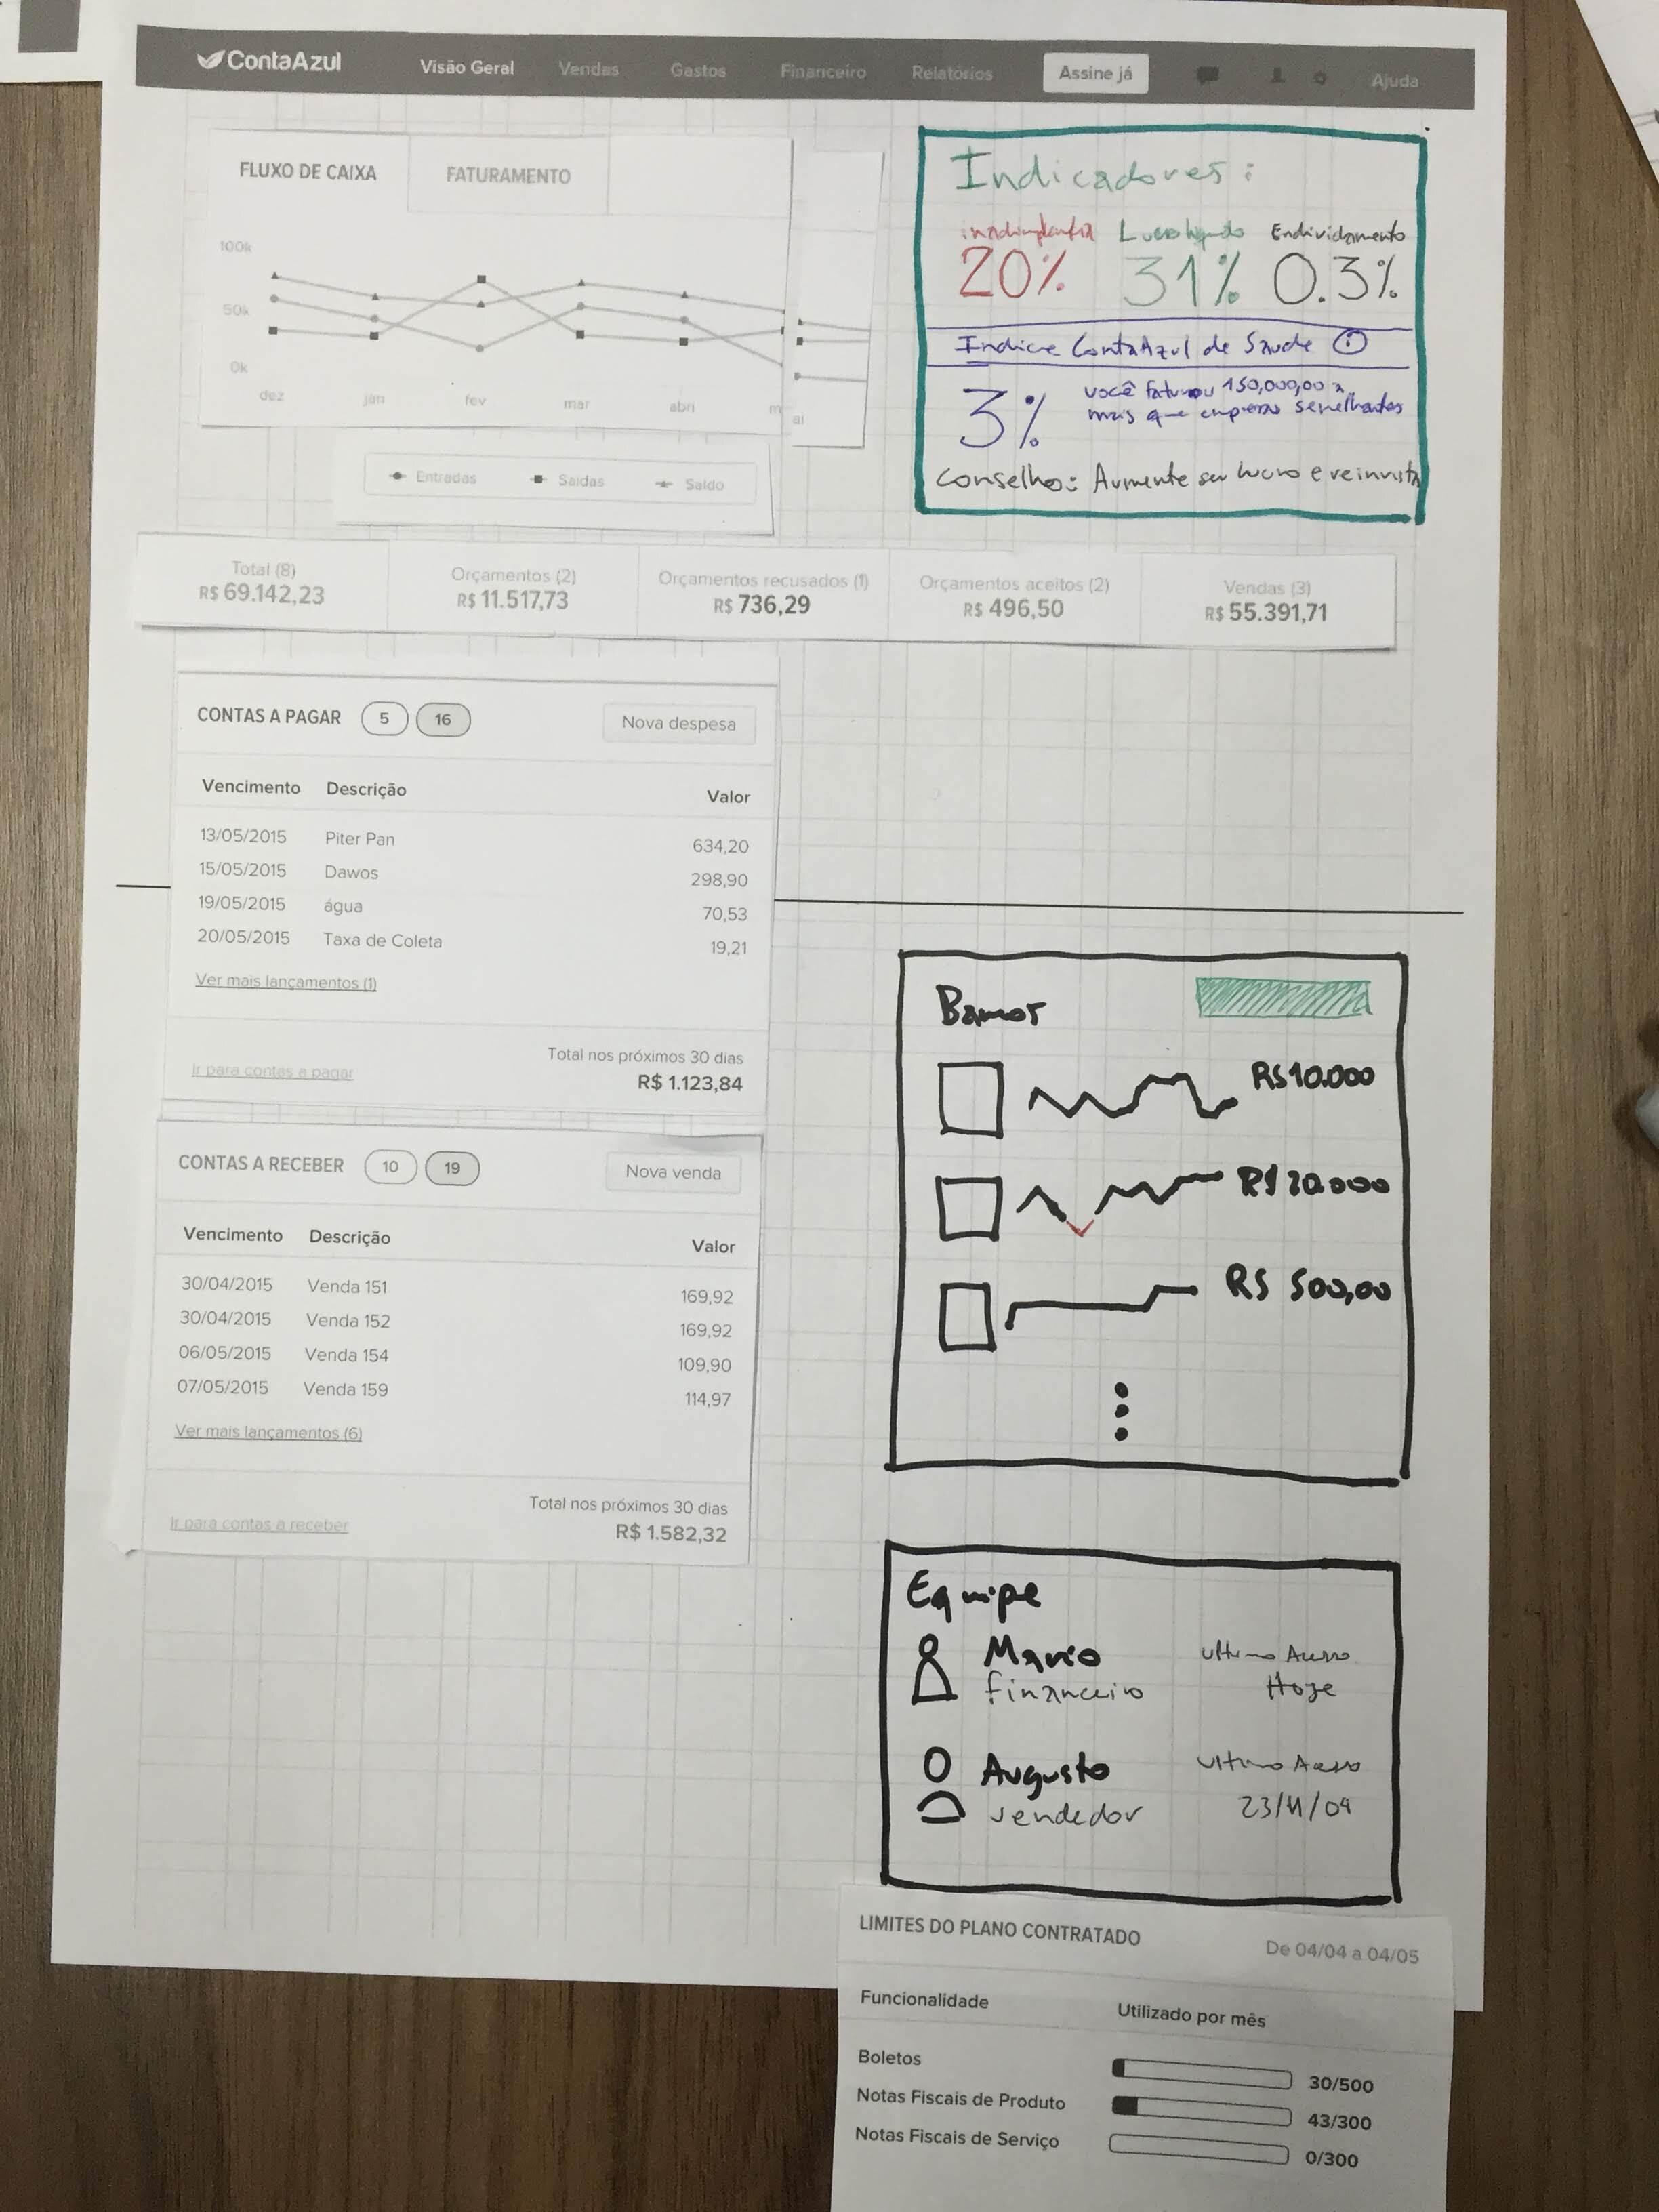 ContaAzul
Visão Geral Vendas Gastos Financeiro Relatórios Assine já Ajuda
FLUXO DE CAIXA FATURAMENTO
100k
50k
0k
dez jan fev mar abri m ai
Entradas Saídas Saldo
Indicadores:
Lucro líquido Endividamento
20% 31% 0.3%
Indice ContaAzul de Saude
3%
você faturou 150,000,00
mais que empresas semelhantes
Conselho: Aumente seu lucro e reinvista
Total (8)
R$ 69.142,23
Orçamentos (2)
R$ 11.517,73
Orçamentos recusados (1)
R$ 736,29
Orçamentos aceitos (2)
R$ 496,50
Vendas (3)
R$ 55.391,71
CONTAS A PAGAR 5 16 Nova despesa
Vencimento Descrição Valor
13/05/2015 Piter Pan 634,20
15/05/2015 Dawos 298,90
19/05/2015 água 70,53
20/05/2015 Taxa de Coleta 19,21
Ver mais lançamentos (1)
Total nos próximos 30 dias
Ir para contas a pagar R$ 1.123,84
CONTAS A RECEBER 10 19 Nova venda
Vencimento Descrição Valor
30/04/2015 Venda 151 169,92
30/04/2015 Venda 152 169,92
06/05/2015 Venda 154 109,90
07/05/2015 Venda 159 114,97
Ver mais lançamentos (6)
Total nos próximos 30 dias
Ir para contas a receber R$ 1.582,32
Bancos
R$ 10.000
R$ 20.000
R$ 500,00
Equipe
Mario ultimo Acesso
financeiro Hoje
Augusto ultimo Acesso
vendedor 23/11/04
LIMITES DO PLANO CONTRATADO De 04/04 a 04/05
Funcionalidade Utilizado por mês
Boletos 30/500
Notas Fiscais de Produto 43/300
Notas Fiscais de Serviço 0/300